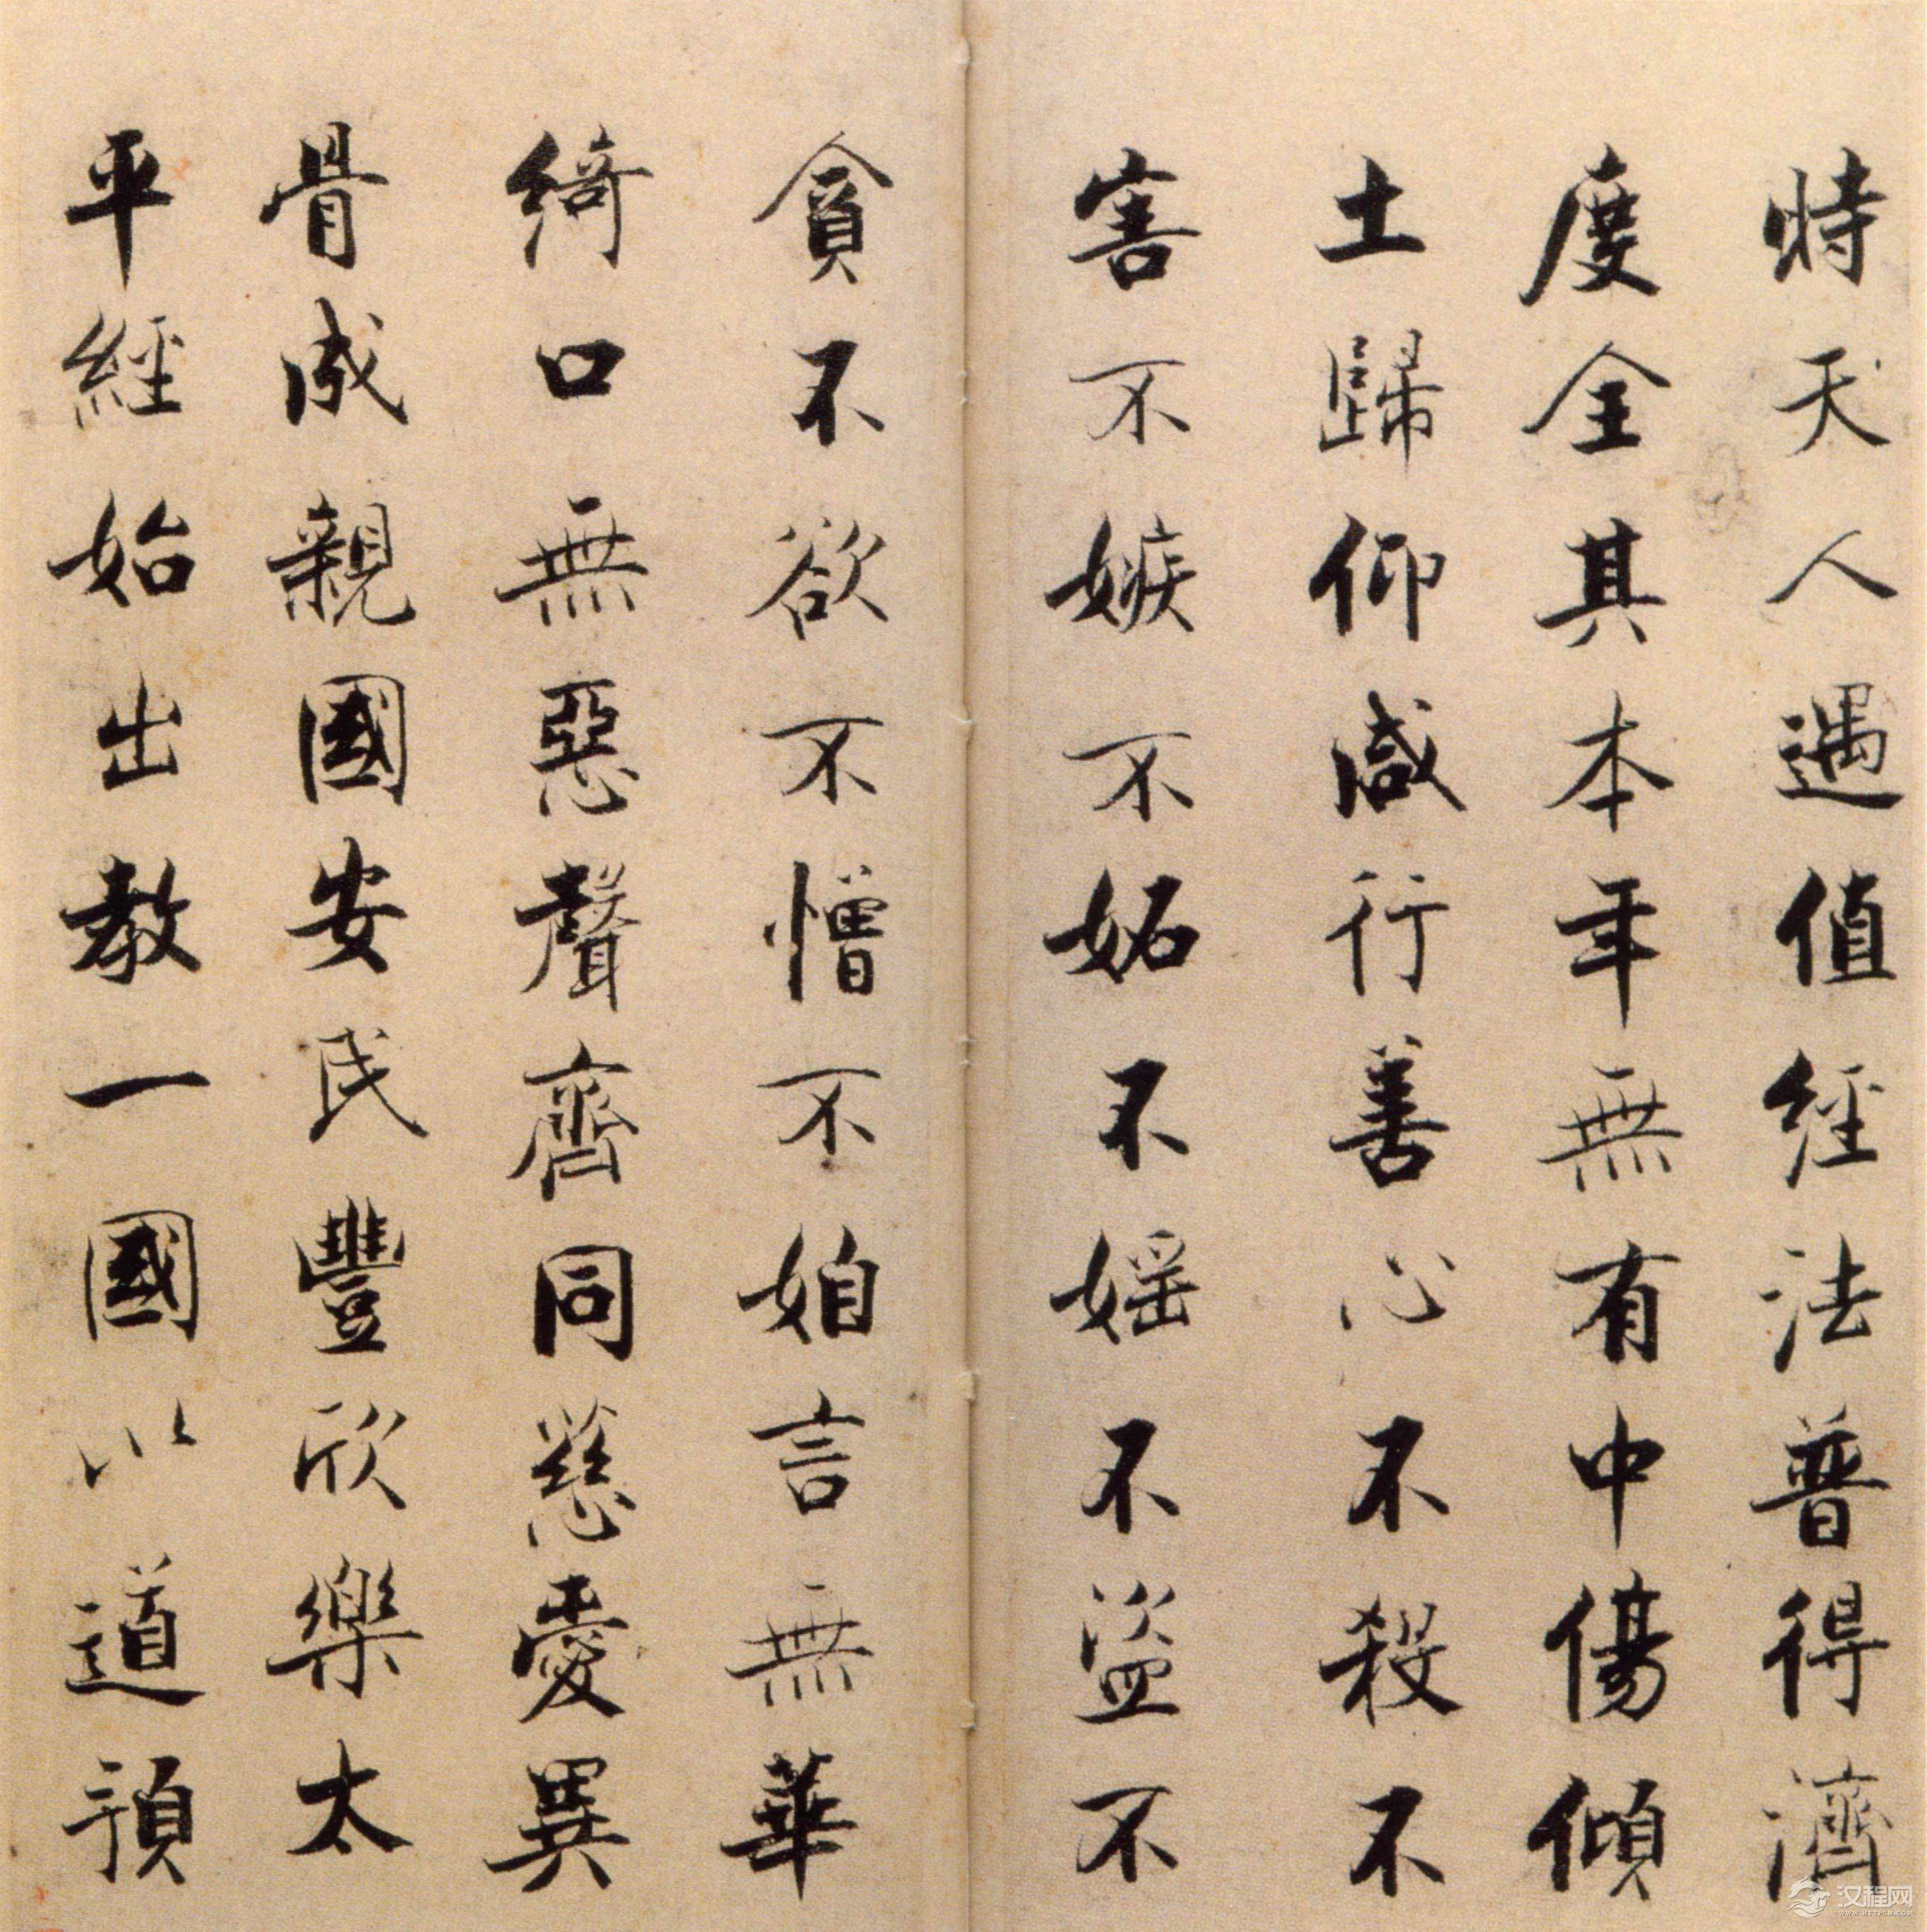 時天人遇值經法普得濟
度全其本年無有中傷傾
土歸仰咸行善心不殺不
害不嫉不妬不婬不盜不
貪不欲不憎不妲言無華
綺口無惡聲齊同慈愛異
骨成親國安民豐欣樂太
平經始出教一國以道預
汉程网
WWW.HTTPCN.COM